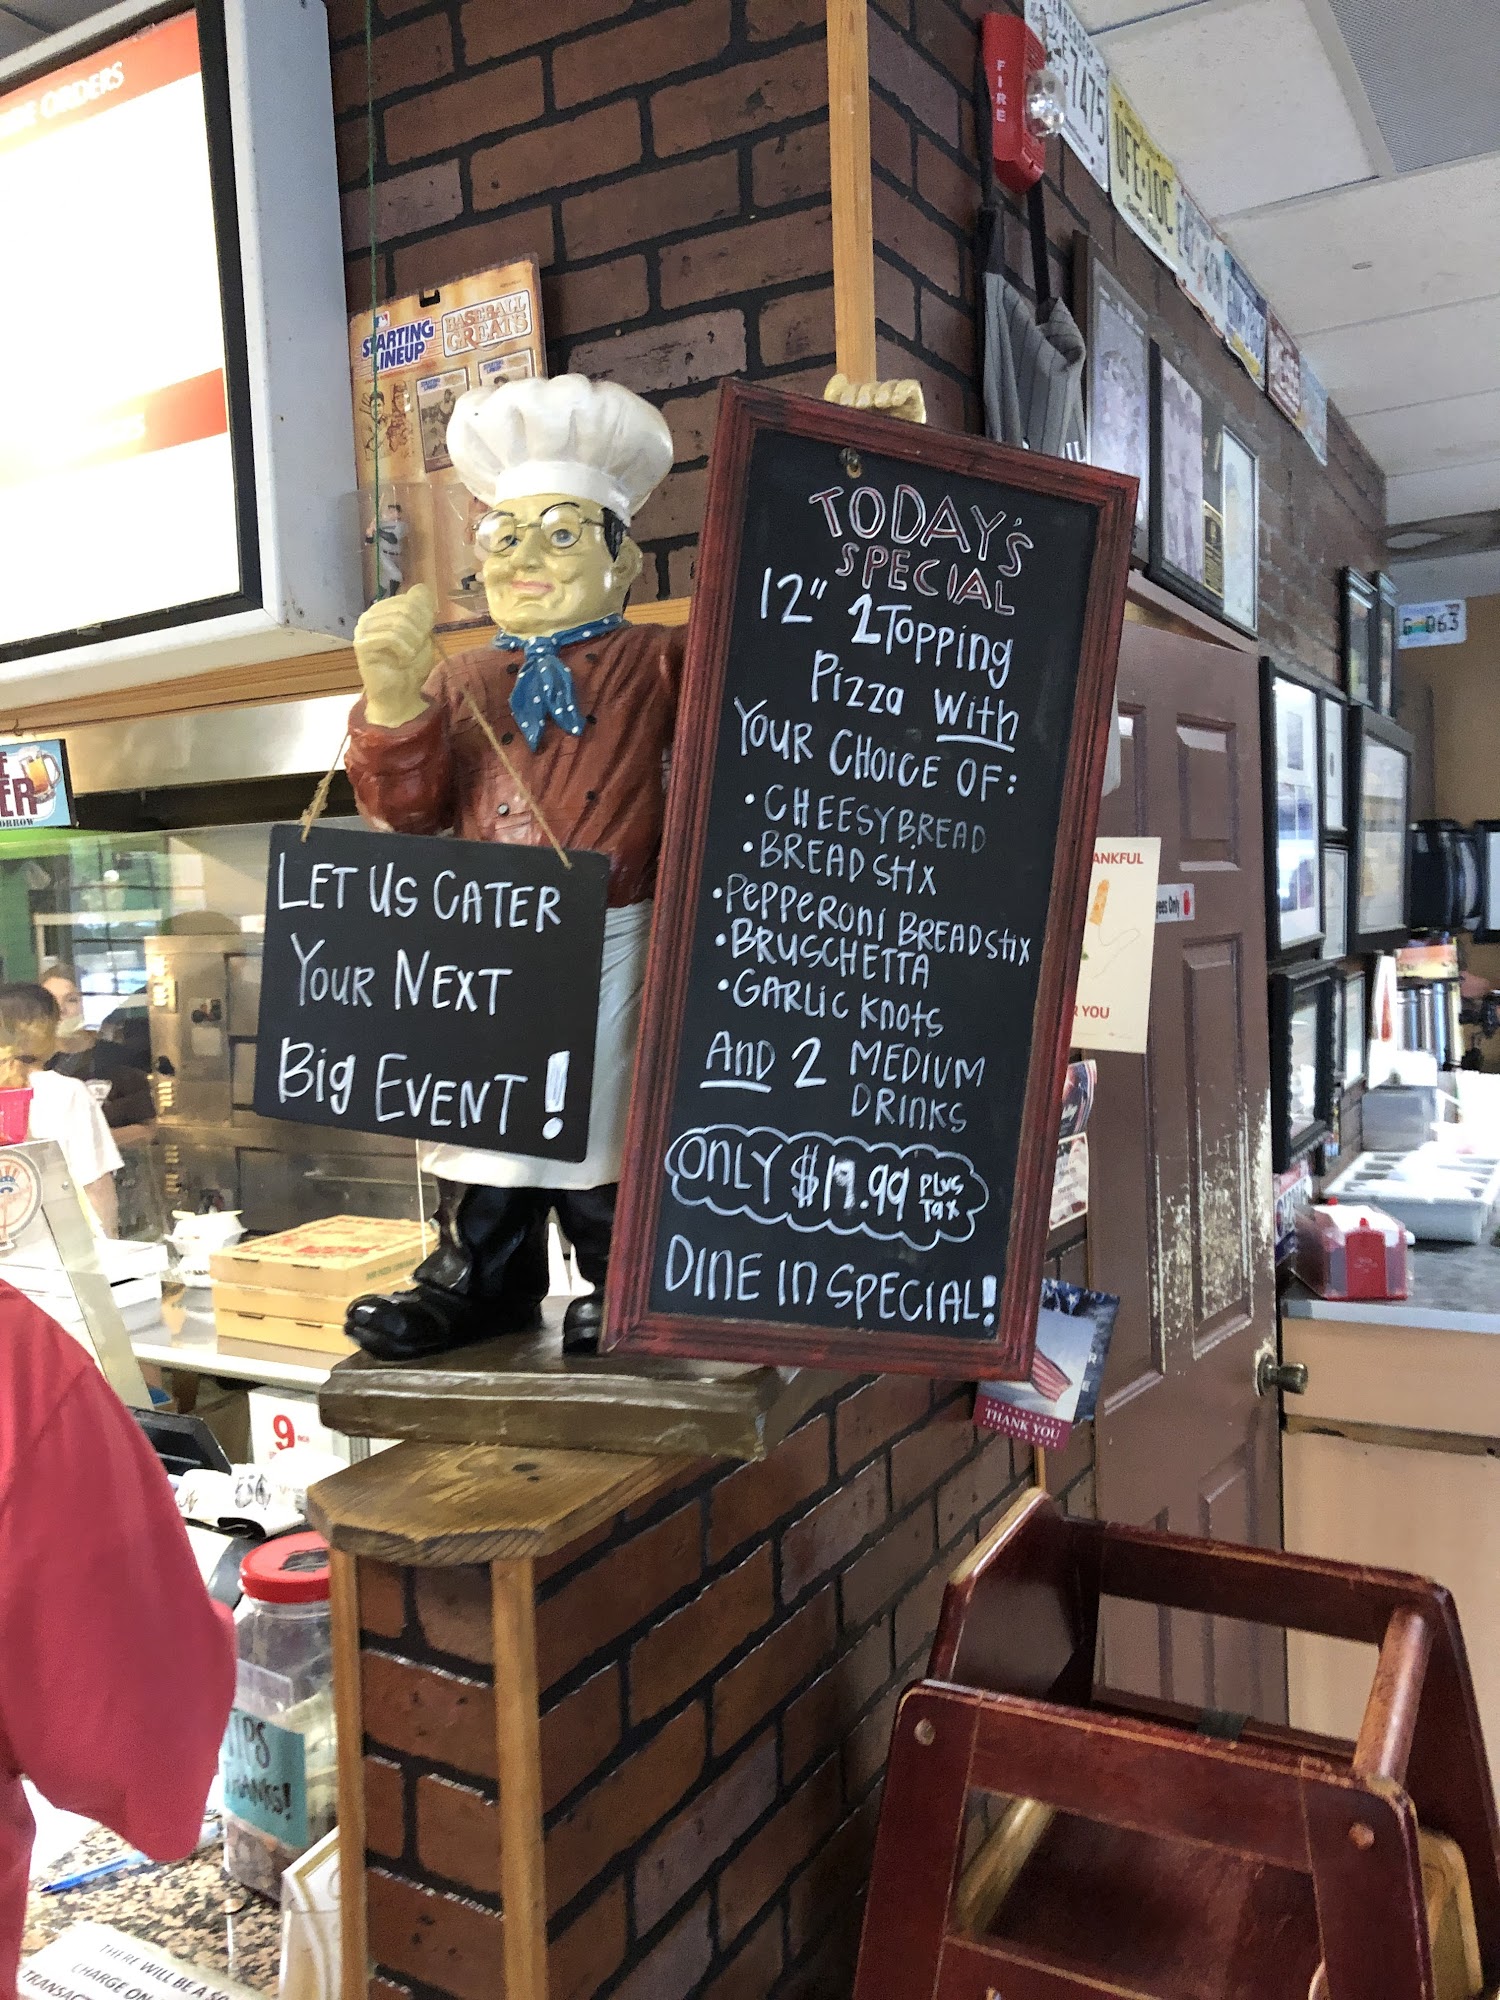 ORDERS
STARTING
LINEUP
BASEBALL
GREATS
FIRE
7475
UFE·10C
G 063
TODAY'S
SPECIAL
12" 2 Topping
Pizza With
YOUR CHOICE OF:
• CHEESYBREAD
• BREADSTIX
• PEPPERONI BREADSTIX
• BRUSCHETTA
• GARLIC KNOTS
AND 2 MEDIUM
DRINKS
ONLY $19.99 PLUS
TAX
DINE IN SPECIAL!
LET US CATER
YOUR NEXT
Big EVENT!
ANKFUL
YOU
Only
THANK YOU
9
TIPS
THANKS!
THERE WILL BE A
CHARGE ON